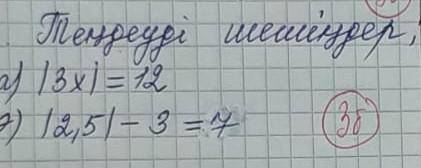 Теңдеуді шешіңдер,
а) |3x| = 12
|2,5| - 3 = 7
3б